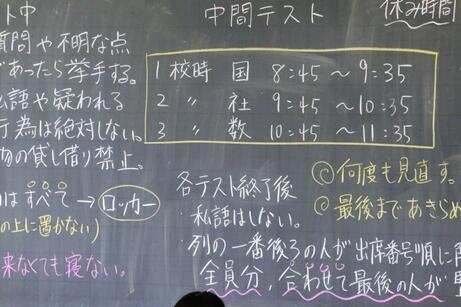 ト中
中間テスト
休み時間
質問や不明な点
があったら挙手する。
私語や疑われる
行為は絶対しない。
物の貸し借り禁止。
1 校時 国 8:45 ～ 9:35
2 〃 社 9:45 ～ 10:35
3 〃 数 10:45 ～ 11:35
はすべて → ロッカー
の上に置かない)
来なくても寝ない。
各テスト終了後
・私語はしない。
・列の一番後ろの人が出席番号順に
全員分、合わせて最後の人が
◎何度も見直す。
◎最後まであきらめ